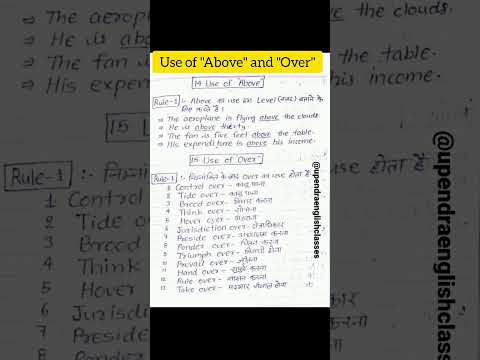 ⇒ The aeroplane is flying above the clouds.
⇒ He is above
⇒ The fan is above the table.
⇒ His expend his income.
Use of "Above" and "Over"
14 Use of "Above"
Rule-1 :- Above का use हम Level (स्तर) बताने के
लिए करते है।
⇒ The aeroplane is flying above the clouds.
⇒ He is above thirty.
⇒ The fan is five feet above the table.
⇒ His expenditure is above his income.
15 Use of Over"
Rule-1 :- निम्नलिखित के साथ Over का use होता है
1 Control over - काबू पाना
2 Tide over - काबू पाना
3 Breed over - विचार करना
4 Think over - सोचना
5 Hover over - मंडराना
6 Jurisdiction over - क्षेत्राधिकार
7 Preside over - अध्यक्षता करना
8 Ponder over - चिंतन करना
9 Triumph over - विजयी होना
10 Prevail over -
11 Hand over - सुपुर्द करना
12 Rule over - शासन करना
13 Take over - पदभार संभाल लेना
15 U
Rule-1 :- होता है
1 Control
2 Tide o
3 Breed
4 Think
5 Hover
6 Jurisd
7 Preside करना
8 Ponder
@upendraenglishclasses